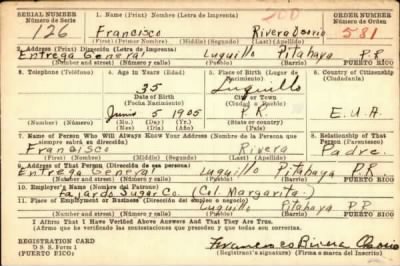 SERIAL NUMBER 1. Name (Print) Nombre (Letra de Imprenta) ORDER NUMBER
Número de Serie Número de Orden
126 Francisco Rivera Osorio 581
(First) (Primer Nombre) (Middle) (Segundo) (Last) (Apellido)
2. Address (Print) Dirección (Letra de Imprenta)
Entrega General Luquillo Pitahaya P.R.
(Number and street) (Número y calle) (Town) (Pueblo) (Barrio) PUERTO RICO
3. Telephone (Teléfono) 4. Age in Years (Edad) 5. Place of Birth (Lugar de Nacimiento) 6. Country of Citizenship (Ciudadanía)
35 Luquillo
Date of Birth City or Town
(Fecha Nacimiento) (Ciudad o Pueblo)
Junio 1905 P.R. E.U.A.
(Mo.) (Day) (Yr.) State or country
(Mes) (Día) (Año) (Estado o país)
7. Name of Person Who Will Always Know Your Address (Nombre de la Persona que siempre sabrá su dirección) 8. Relationship of That Person (Parentesco)
Francisco Rivera Padre.
(First) (Primer nombre) (Middle) (Segundo) (Last) (Apellido)
9. Address of That Person (Dirección de esa persona)
Entrega General Luquillo Pitahaya P.R.
(Number and street) (Número y calle) (Town) (Pueblo) (Barrio) PUERTO RICO
10. Employer's Name (Nombre del Patrono)
Fajardo Sugar Co. (Col. Margarita.)
11. Place of Employment or Business (Dirección del empleo o negocio)
Luquillo Pitahaya P.R.
(Number and street) (Número y calle) (Town) (Pueblo) (Barrio) PUERTO RICO
I Affirm That I Have Verified Above Answers and That They Are True.
(Afirmo que he verificado las contestaciones que preceden y que todas son correctas.)
REGISTRATION CARD
D S S. Form 1
(PUERTO RICO) Rivera Osorio
Registrant's signature) (Firma o marca del Inscrito)